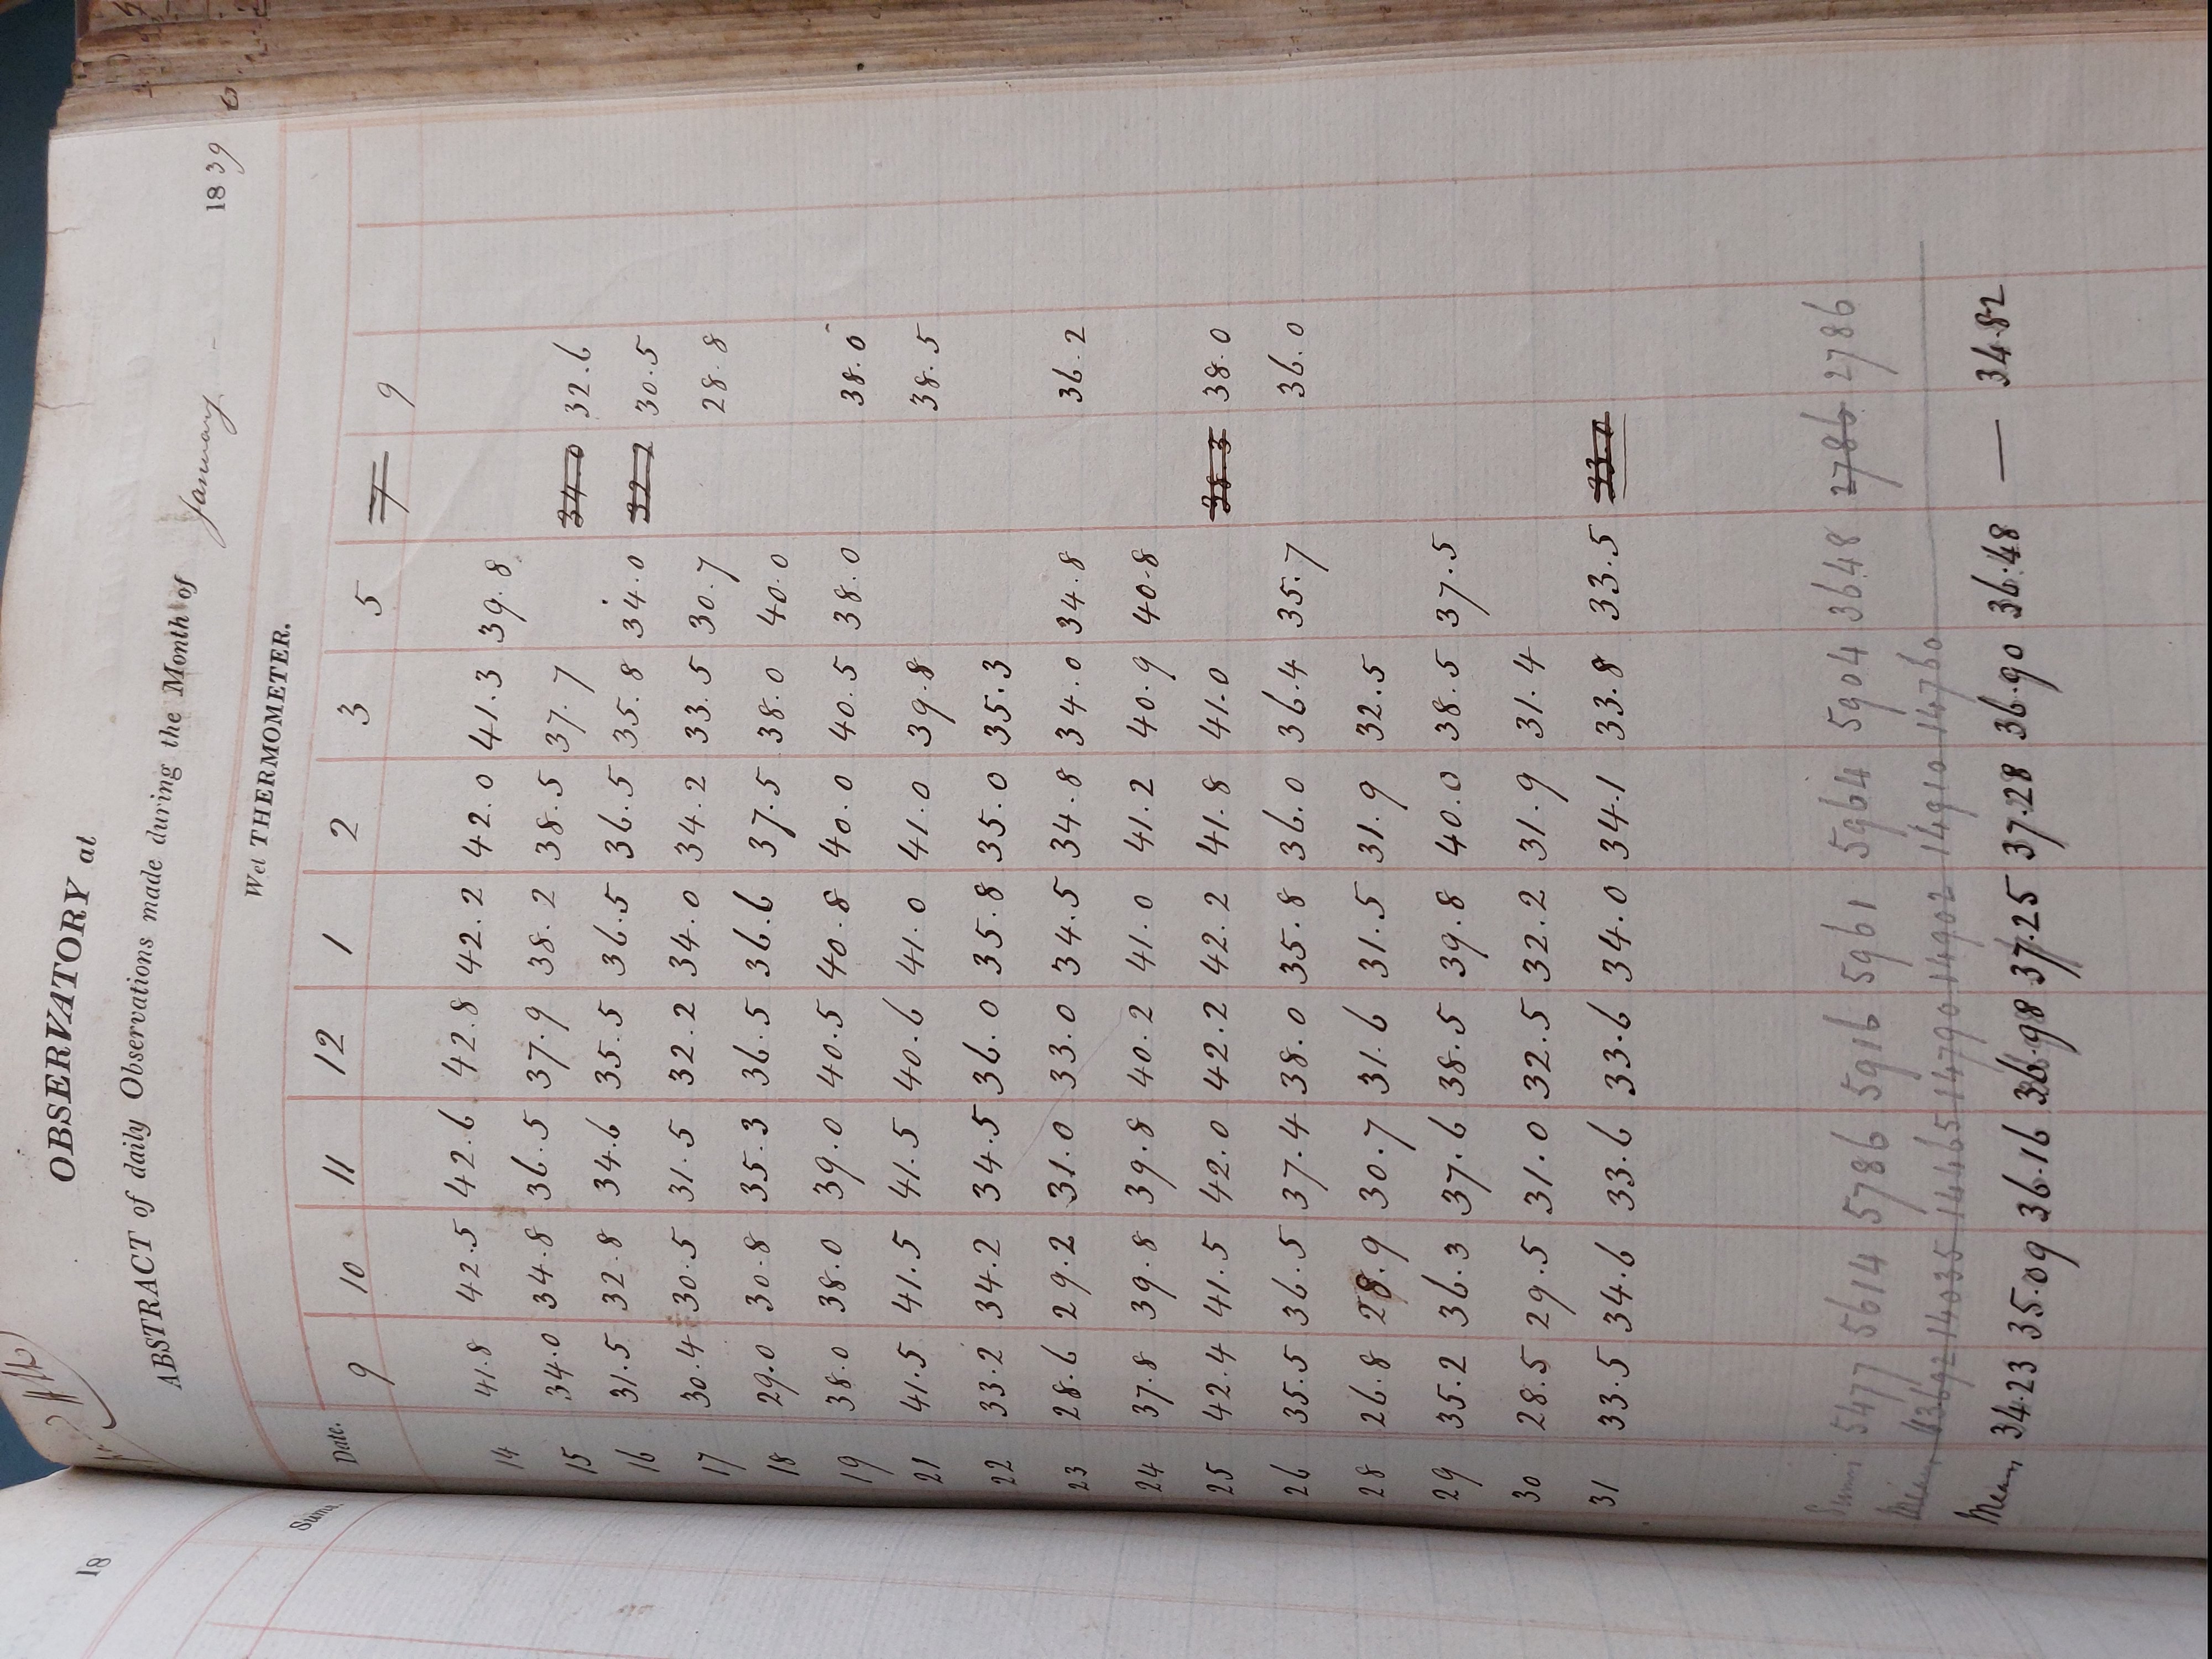 18
Sums.
OBSERVATORY at
ABSTRACT of daily Observations made during the Month of January 1839
Wet THERMOMETER.
Date. 9 10 11 12 1 2 3 5 7 9
14 41.8 42.5 42.6 42.8 42.2 42.0 41.3 39.8
15 34.0 34.8 36.5 37.9 38.2 38.5 37.7 34.0 32.6
16 31.5 32.8 34.6 35.5 36.5 36.5 35.8 34.0 32.2 30.5
17 30.4 30.5 31.5 32.2 34.0 34.2 33.5 30.7 28.8
18 29.0 30.8 35.3 36.5 36.6 37.5 38.0 40.0
19 38.0 38.0 39.0 40.5 40.8 40.0 40.5 38.0 38.0
21 41.5 41.5 41.5 40.6 41.0 41.0 39.8 38.5
22 33.2 34.2 34.5 36.0 35.8 35.0 35.3
23 28.6 29.2 31.0 33.0 34.5 34.8 34.0 34.8 36.2
24 37.8 39.8 39.8 40.2 41.0 41.2 40.9 40.8
25 42.4 41.5 42.0 42.2 42.2 41.8 41.0 38.3 38.0
26 35.5 36.5 37.4 38.0 35.8 36.0 36.4 35.7 36.0
28 26.8 28.9 30.7 31.6 31.5 31.9 32.5
29 35.2 36.3 37.6 38.5 39.8 40.0 38.5 37.5
30 28.5 29.5 31.0 32.5 32.2 31.9 31.4
31 33.5 34.6 33.6 33.6 34.0 34.1 33.8 33.5 33.0
Sums 5477 5614 5786 5916 5961 5964 5904 3648 2786 2786
Mean 13692 14035 14465 14790 14902 14910 14760
Mean 34.23 35.09 36.16 36.98 37.25 37.28 36.90 36.48 — 34.82